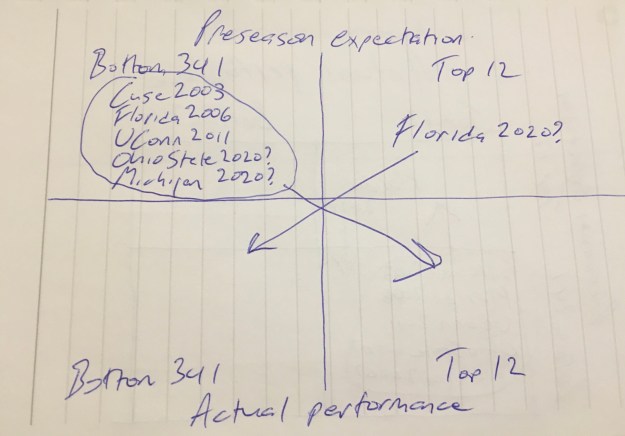 Preseason expectation.
Bottom 341
Top 12
Cuse 2003
Florida 2006
UConn 2011
Ohio State 2020?
Michigan 2020?
Florida 2020?
Bottom 341
Top 12
Actual performance